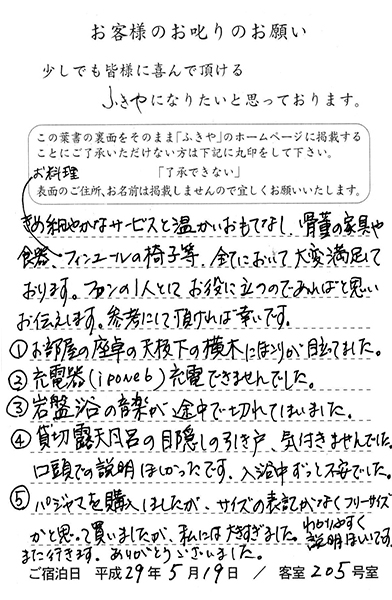 お客様のお叱りのお願い
少しでも皆様に喜んで頂ける
ふきやになりたいと思っております。
この葉書の裏面をそのまま「ふきや」のホームページに掲載する
ことにご了承いただけない方は下記に丸印をして下さい。
お料理 「了承できない」
表面のご住所、お名前は掲載しませんので宜しくお願いいたします。
きめ細やかなサービスと温かいおもてなし、骨董の家具や
食器、フィンユールの椅子等、全てにおいて大変満足して
おります。ファンの1人としてお役に立つのであればと思い
お伝えします。参考にして頂ければ幸いです。
①お部屋の座卓の天板下の横木にほこりが目立てました。
②充電器(ipone6)充電できませんでした。
③岩盤浴の音楽が途中で切れてしまいました。
④貸切露天風呂の目隠しの引き戸、気付きませんでした。
口頭での説明ほしかったです、入浴中ずっと不安でした。
⑤パジャマを購入しましたが、サイズの表記がなくフリーサイズ
かと思って買いましたが、私には大きすぎました。わかりやすく
説明ほしいです。
また行きます。ありがとうございました。
ご宿泊日 平成29年5月19日 / 客室205号室